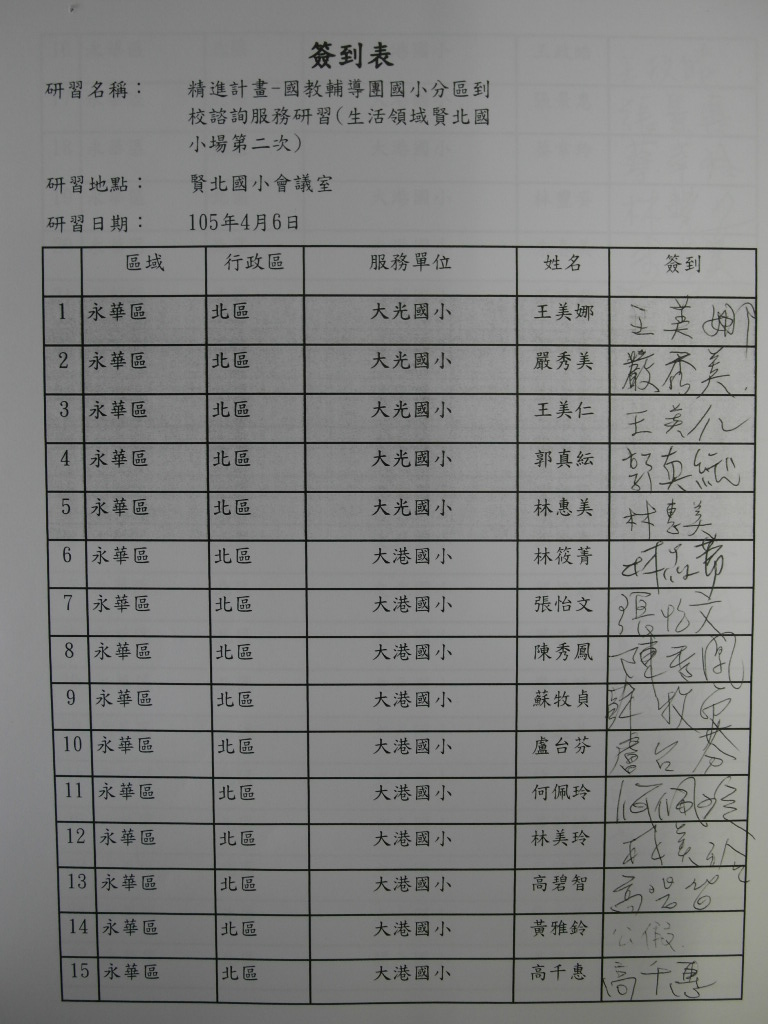 簽到表
研習名稱： 精進計畫-國教輔導團國小分區到
校諮詢服務研習(生活領域賢北國
小場第二次)
研習地點： 賢北國小會議室
研習日期： 105年4月6日
區域 行政區 服務單位 姓名 簽到
1 永華區 北區 大光國小 王美娜 王美娜
2 永華區 北區 大光國小 嚴秀美 嚴秀美
3 永華區 北區 大光國小 王美仁 王美仁
4 永華區 北區 大光國小 郭真紜 郭真紜
5 永華區 北區 大光國小 林惠美 林惠美
6 永華區 北區 大港國小 林筱菁 林筱菁
7 永華區 北區 大港國小 張怡文 張怡文
8 永華區 北區 大港國小 陳秀鳳 陳秀鳳
9 永華區 北區 大港國小 蘇牧貞 蘇牧貞
10 永華區 北區 大港國小 盧台芬 盧台芬
11 永華區 北區 大港國小 何佩玲 何佩玲
12 永華區 北區 大港國小 林美玲 林美玲
13 永華區 北區 大港國小 高碧智 高碧智
14 永華區 北區 大港國小 黃雅鈴 公假
15 永華區 北區 大港國小 高千惠 高千惠